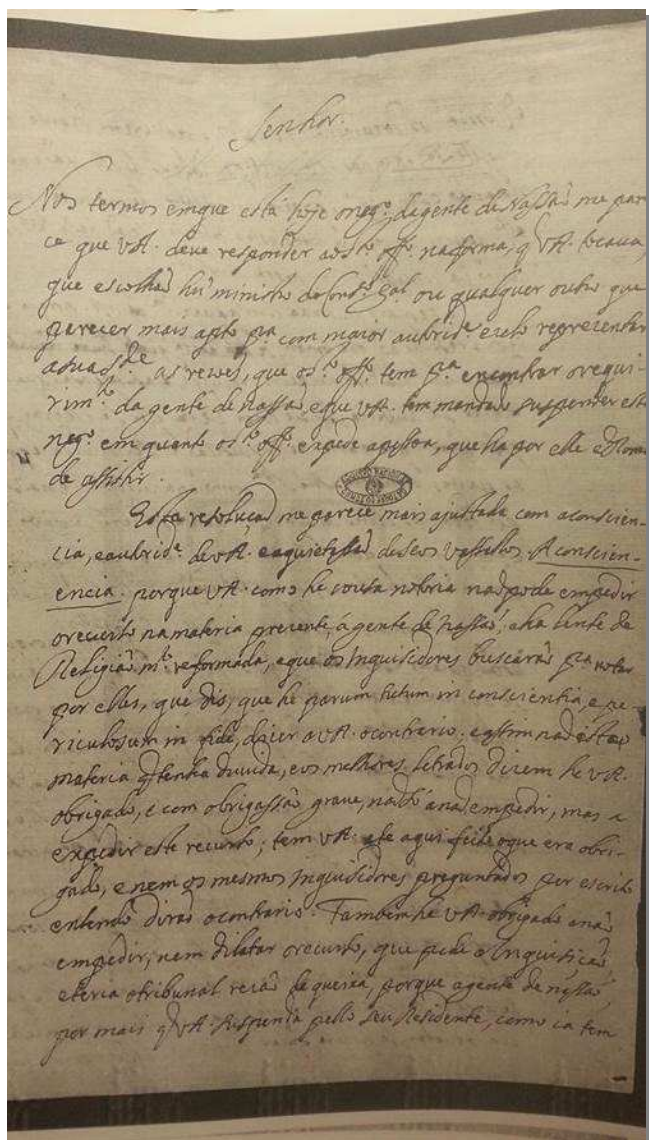 Senhor.
Nos termos emque está hoje o neg.º dagente da Nassaõ me pare
ce que VA. deve responder ao s.to off.º na forma, q̃ VA. tocava,
que escolhaõ hũ ministro do Cons.º g.al ou qualquer outro que
parecer mais apto p.a com maior authorid.e e zelo reprezentar
a sua s.de as rezoẽs, que o s.to off.º tem p.a encontrar o requi-
rim.to da gente de nassaõ, e que VA. tem mandado suspender este
neg.º em quanto o s.to off.º expede a pessoa, que ha por elle e Roma
de assistir.
Esta resoluçaõ me parece mais ajustada com a conscien-
cia, e authorid.e de VA. e a quietassaõ de seos vassallos. A conscien-
encia. porque VA. como he cousa notoria naõ pode empedir
o recurso na materia prezente, á gente de nassaõ; e ha lente de
Religiaõ m.to reformada, e que os Inquisidores buscaraõ p.a votar
por elles, que dis, que he parum tutum in conscientia, e pe-
riculosum in fide, dizer a VA. o contrario. e assim naõ está
materia q̃ tenha duvida, e os melhores letrados dizem he VA.
obrigado, e com obrigassaõ grave, naõ só a naõ empedir, mas a
expedir este recurso; tem VA. ate aqui feito o que era obri-
gado, e nem os mesmos Inquisidores preguntados por escrito
entendo diraõ o contrario. Tambem he VA. obrigado a naõ
empedir, nem dilatar o recurso, que pede a Inquisiçaõ,
e teria o tribunal rezaõ de queixa, porque a gente de nassaõ,
por mais q̃ VA. suspenda pello seu Residente, como ia tem